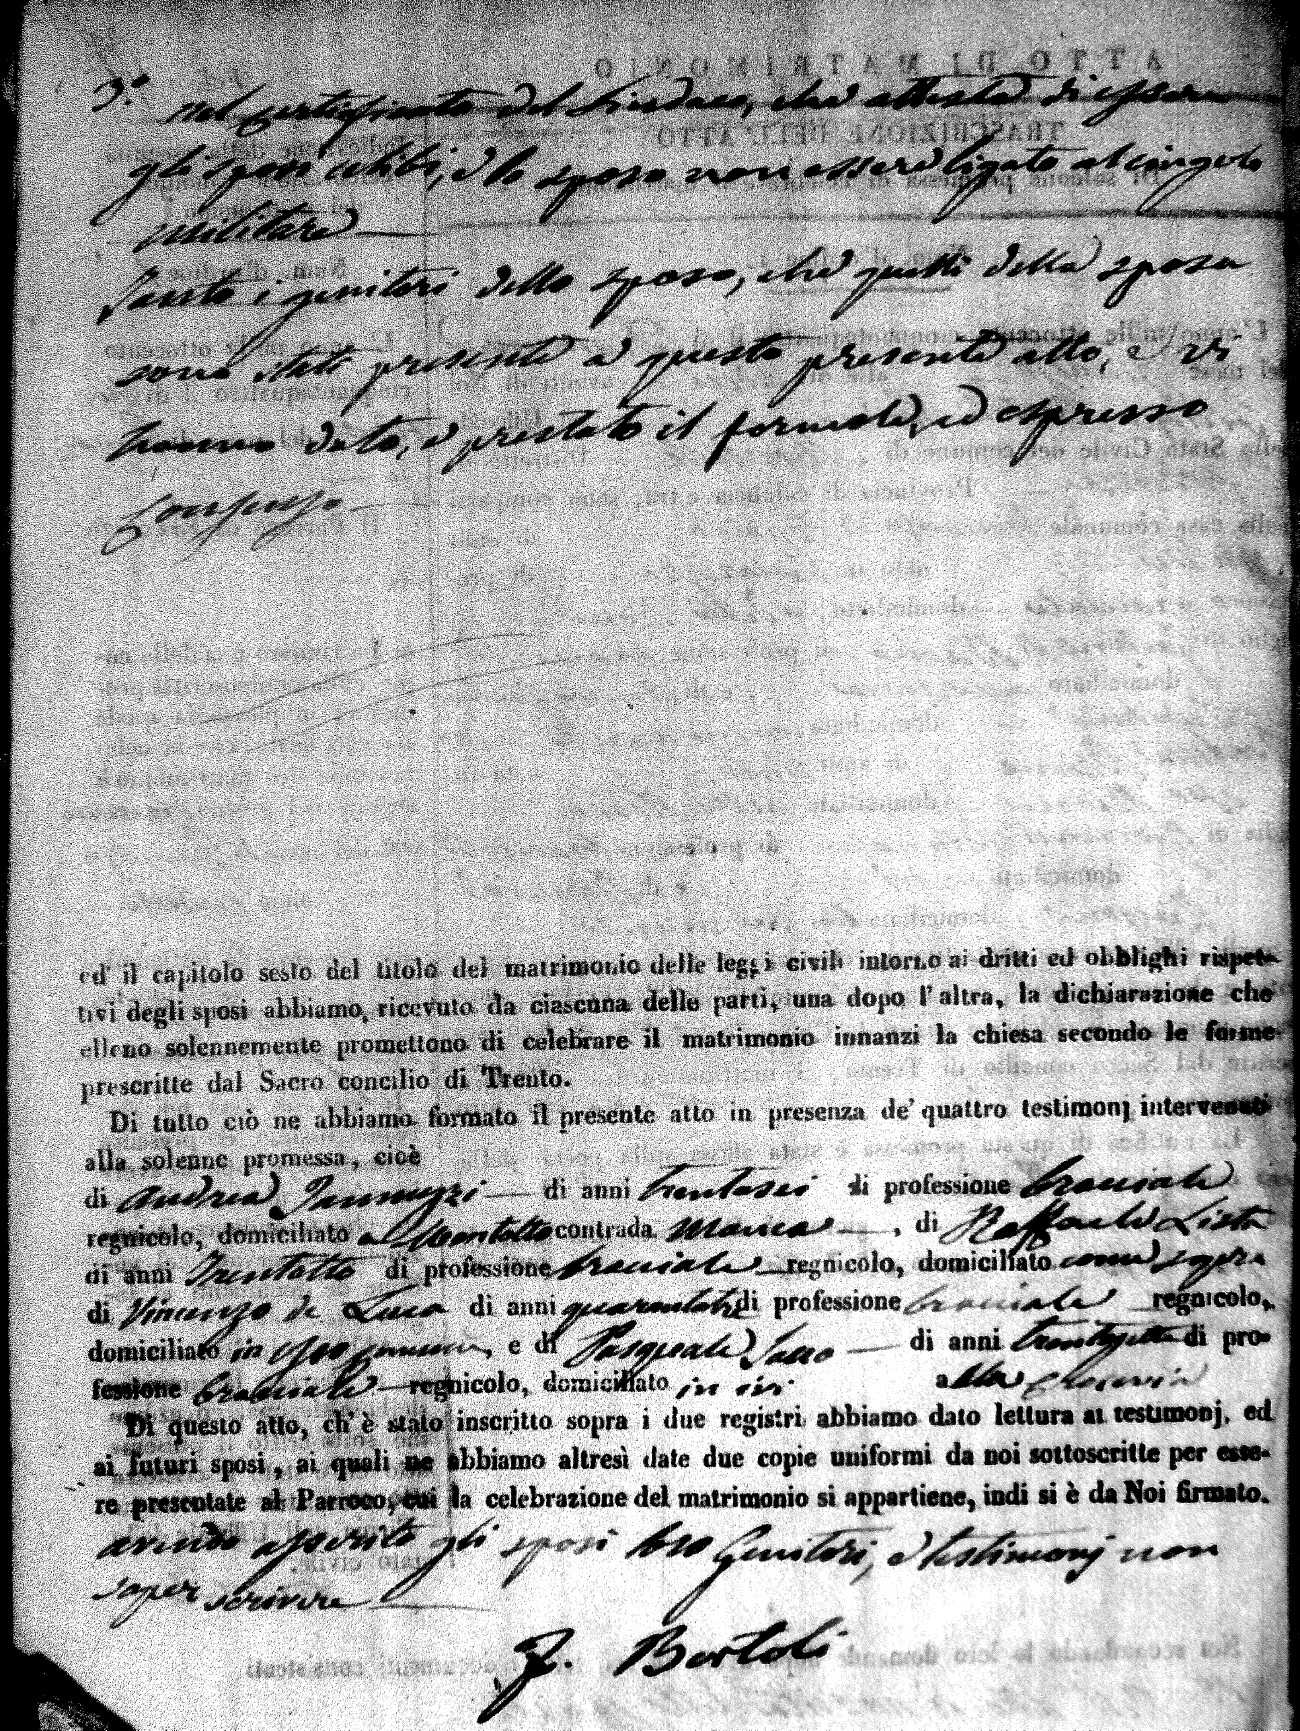 3.° nel certificato del Sindaco, che attesta di essere
gli sposi celibi, e lo sposo non essere ligato al cingolo
militare
Tanto i genitori dello sposo, che quelli della sposa
sono stati presenti a questo presente atto, e vi
hanno dato, e prestato il formale, ed espresso
Consenso
ed' il capitolo sesto del titolo del matrimonio delle leggi civili intorno ai dritti ed obblighi rispet-
tivi degli sposi abbiamo, ricevuto da ciascuna delle parti, una dopo l'altra, la dichiarazione che
elleno solennemente promettono di celebrare il matrimonio innanzi la chiesa secondo le forme
prescritte dal Sacro concilio di Trento.
Di tutto ciò ne abbiamo formato il presente atto in presenza de' quattro testimonj intervenuti
alla solenne promessa, cioè
di Andrea Iannuzzi di anni trentasei di professione bracciale
regnicolo, domiciliato a Montalto contrada Manca, di Raffaele Lista
di anni Trentotto di professione bracciale regnicolo, domiciliato come sopra
di Vincenzo de Luca di anni di professione bracciale regnicolo,
domiciliato in e di Pasquale Sacco di anni di pro-
fessione bracciale regnicolo, domiciliato in ivi alla
Di questo atto, ch' è stato inscritto sopra i due registri abbiamo dato lettura ai testimonj, ed
ai futuri sposi, ai quali ne abbiamo altresì date due copie uniformi da noi sottoscritte per esse-
re presentate al Parroco, cui la celebrazione del matrimonio si appartiene, indi si è da Noi firmato.
avendo asserito gli sposi loro Genitori, e testimonj non
saper scrivere
F. Bertoli